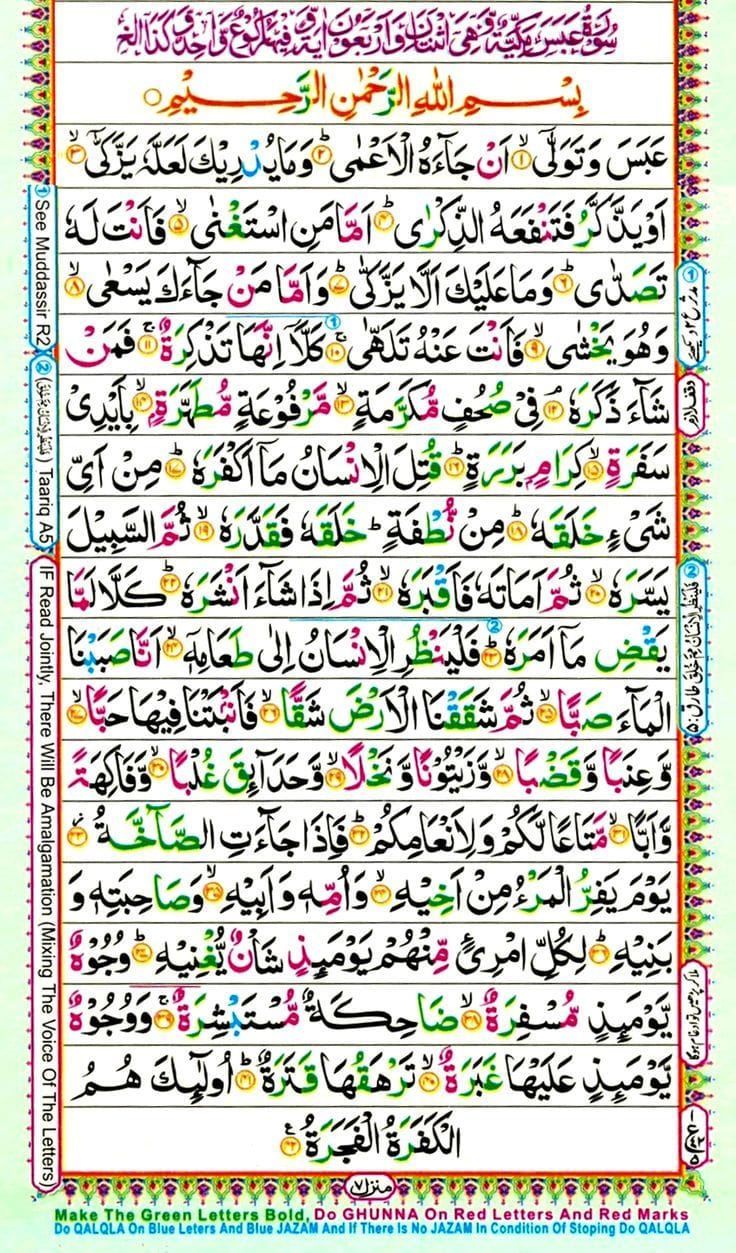 سُوْرَةُ عَبَسَ مَكِّيَّةٌ وَّهِىَ اثْنَتَانِ وَاَرْبَعُوْنَ اٰيَةً وَّفِيْهَا رُكُوْعٌ وَّاحِدٌ
بِسْمِ اللهِ الرَّحْمٰنِ الرَّحِيْمِ
عَبَسَ وَتَوَلّٰٓى ۙ﴿۱﴾ اَنْ جَآءَهُ الْاَعْمٰى ؕ﴿۲﴾ وَمَا يُدْرِيْكَ لَعَلَّهٗ يَزَّكّٰٓى ۙ﴿۳﴾
اَوْ يَذَّكَّرُ فَتَنْفَعَهُ الذِّكْرٰى ؕ﴿۴﴾ اَمَّا مَنِ اسْتَغْنٰى ۙ﴿۵﴾ فَاَنْتَ لَهٗ
تَصَدّٰى ؕ﴿۶﴾ وَمَا عَلَيْكَ اَلَّا يَزَّكّٰى ؕ﴿۷﴾ وَاَمَّا مَنْ جَآءَكَ يَسْعٰى ۙ﴿۸﴾
وَهُوَ يَخْشٰى ۙ﴿۹﴾ فَاَنْتَ عَنْهُ تَلَهّٰى ۚ﴿۱۰﴾ كَلَّاۤ اِنَّهَا تَذْكِرَةٌ ۚ﴿۱۱﴾ فَمَنْ
شَآءَ ذَكَرَهٗ ۘ﴿۱۲﴾ فِىْ صُحُفٍ مُّكَرَّمَةٍ ۙ﴿۱۳﴾ مَّرْفُوْعَةٍ مُّطَهَّرَةٍ ۙ﴿۱۴﴾ بِاَيْدِىْ
سَفَرَةٍ ۙ﴿۱۵﴾ كِرَامٍ بَرَرَةٍ ؕ﴿۱۶﴾ قُتِلَ الْاِنْسَانُ مَاۤ اَكْفَرَهٗ ؕ﴿۱۷﴾ مِنْ اَىِّ
شَىْءٍ خَلَقَهٗ ؕ﴿۱۸﴾ مِنْ نُّطْفَةٍ ؕ خَلَقَهٗ فَقَدَّرَهٗ ۙ﴿۱۹﴾ ثُمَّ السَّبِيْلَ
يَسَّرَهٗ ۙ﴿۲۰﴾ ثُمَّ اَمَاتَهٗ فَاَقْبَرَهٗ ۙ﴿۲۱﴾ ثُمَّ اِذَا شَآءَ اَنْشَرَهٗ ؕ﴿۲۲﴾ كَلَّا لَمَّا
يَقْضِ مَاۤ اَمَرَهٗ ؕ﴿۲۳﴾ فَلْيَنْظُرِ الْاِنْسَانُ اِلٰى طَعَامِهٖۤ ۙ﴿۲۴﴾ اَنَّا صَبَبْنَا
الْمَآءَ صَبًّا ۙ﴿۲۵﴾ ثُمَّ شَقَقْنَا الْاَرْضَ شَقًّا ۙ﴿۲۶﴾ فَاَنْۢبَتْنَا فِيْهَا حَبًّا ۙ﴿۲۷﴾
وَّعِنَبًا وَّقَضْبًا ۙ﴿۲۸﴾ وَّزَيْتُوْنًا وَّنَخْلًا ۙ﴿۲۹﴾ وَّحَدَآئِقَ غُلْبًا ۙ﴿۳۰﴾ وَّفَاكِهَةً
وَّاَبًّا ۙ﴿۳۱﴾ مَّتَاعًا لَّكُمْ وَلِاَنْعَامِكُمْ ؕ﴿۳۲﴾ فَاِذَا جَآءَتِ الصَّآخَّةُ ۫﴿۳۳﴾
يَوْمَ يَفِرُّ الْمَرْءُ مِنْ اَخِيْهِ ۙ﴿۳۴﴾ وَاُمِّهٖ وَاَبِيْهِ ۙ﴿۳۵﴾ وَصَاحِبَتِهٖ وَ
بَنِيْهِ ؕ﴿۳۶﴾ لِكُلِّ امْرِئٍ مِّنْهُمْ يَوْمَئِذٍ شَاْنٌ يُّغْنِيْهِ ؕ﴿۳۷﴾ وُجُوْهٌ
يَّوْمَئِذٍ مُّسْفِرَةٌ ۙ﴿۳۸﴾ ضَاحِكَةٌ مُّسْتَبْشِرَةٌ ۚ﴿۳۹﴾ وَوُجُوْهٌ
يَّوْمَئِذٍ عَلَيْهَا غَبَرَةٌ ۙ﴿۴۰﴾ تَرْهَقُهَا قَتَرَةٌ ؕ﴿۴۱﴾ اُولٰٓئِكَ هُمُ
الْكَفَرَةُ الْفَجَرَةُ ﴿۴۲﴾ ع
① See Muddassir R2
② (فَلْيَنْظُرِ الْاِنْسَانُ مِمَّ خُلِقَ) Taariq A5
IF Read Jointly, There Will Be Amalgamation (Mixing The Voice Of The Letters)
وقف لازم
② فَلْيَنْظُرِ الْاِنْسَانُ مِمَّ خُلِقَ طارق:۵
ملا کر پڑھیں تو ادغام ہوگا
منزل ۷
Make The Green Letters Bold, Do GHUNNA On Red Letters And Red Marks
Do QALQLA On Blue Leters And Blue JAZAM And If There Is No JAZAM In Condition Of Stoping Do QALQLA